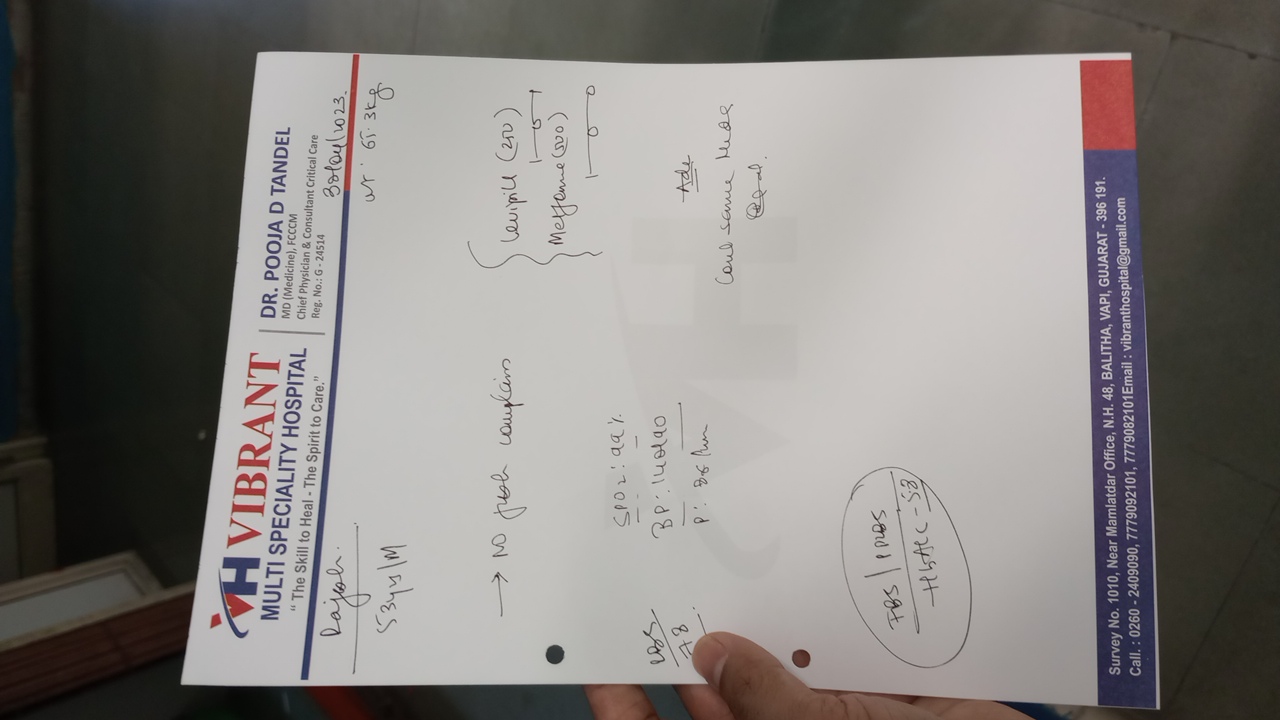 VH VIBRANT
MULTI SPECIALITY HOSPITAL
“ The Skill to Heal - The Spirit to Care.”
DR. POOJA D TANDEL
MD (Medicine), FCCCM
Chief Physician & Consultant Critical Care
Reg. No.: G - 24514
30/04/2023.
Rajesh.
wt: 65.3kg
53yrs/M
→ No fresh complains
Levipill (250)
Metformine (500)
SPO2: 99%
RBS
78
BP: 140/90
P: 86/min
Adv
Cont same
FBS / PPBS
HbA1C - 5.8
VH
Survey No. 1010, Near Mamlatdar Office, N.H. 48, BALITHA, VAPI, GUJARAT - 396 191.
Call. : 0260 - 2409090, 7779092101, 7779082101Email : vibranthospital@gmail.com